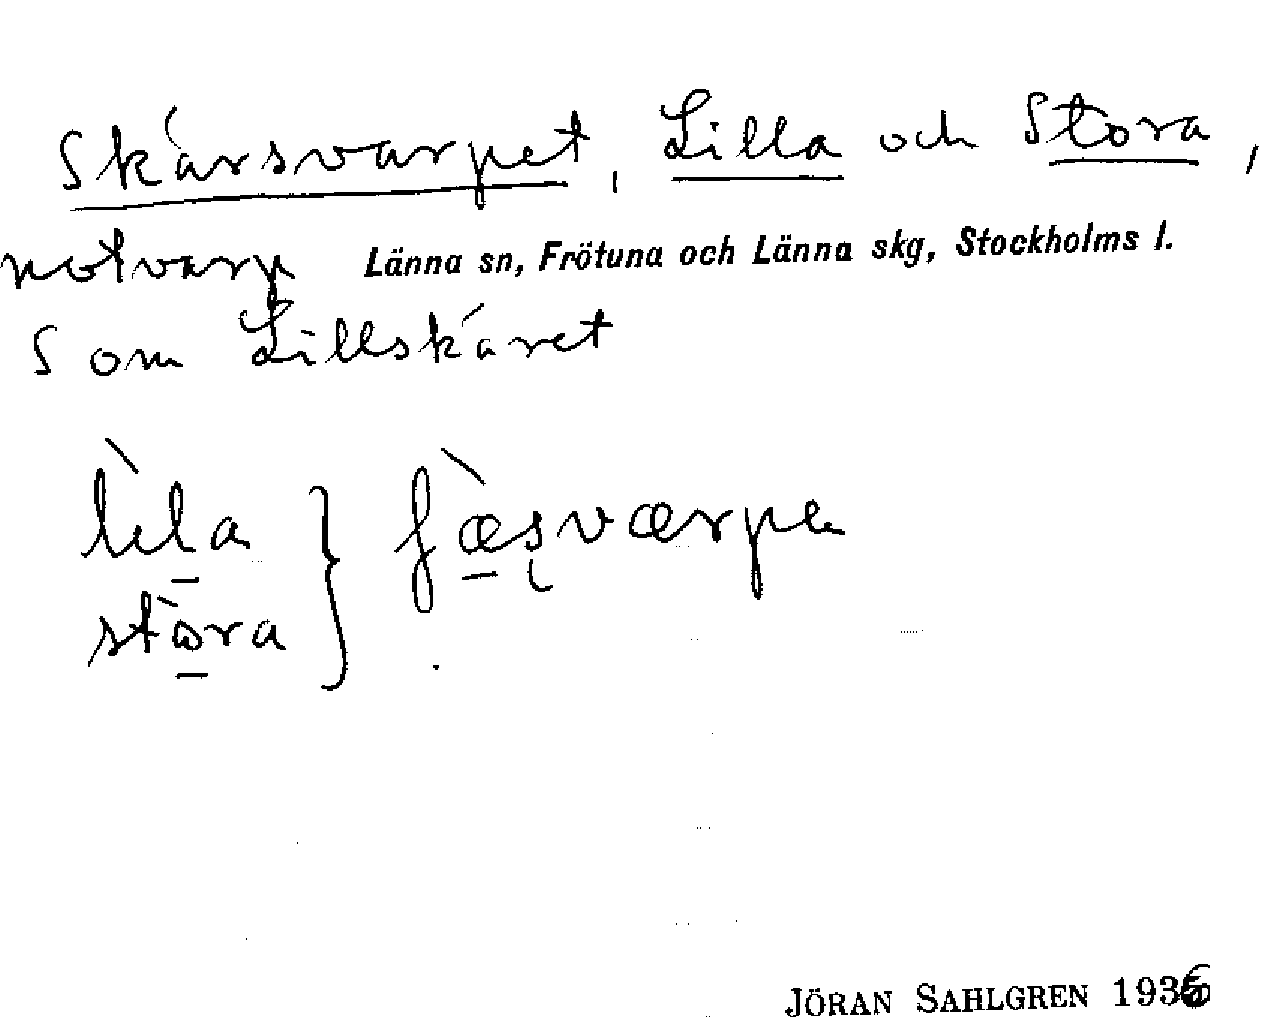 Skärsvarpet, Lilla och Stora,
notvarp Länna sn, Frötuna och Länna skg, Stockholms l.
Som Lillskäret
lìla } fæ̀sværpe
stòra
JÖRAN SAHLGREN 1936